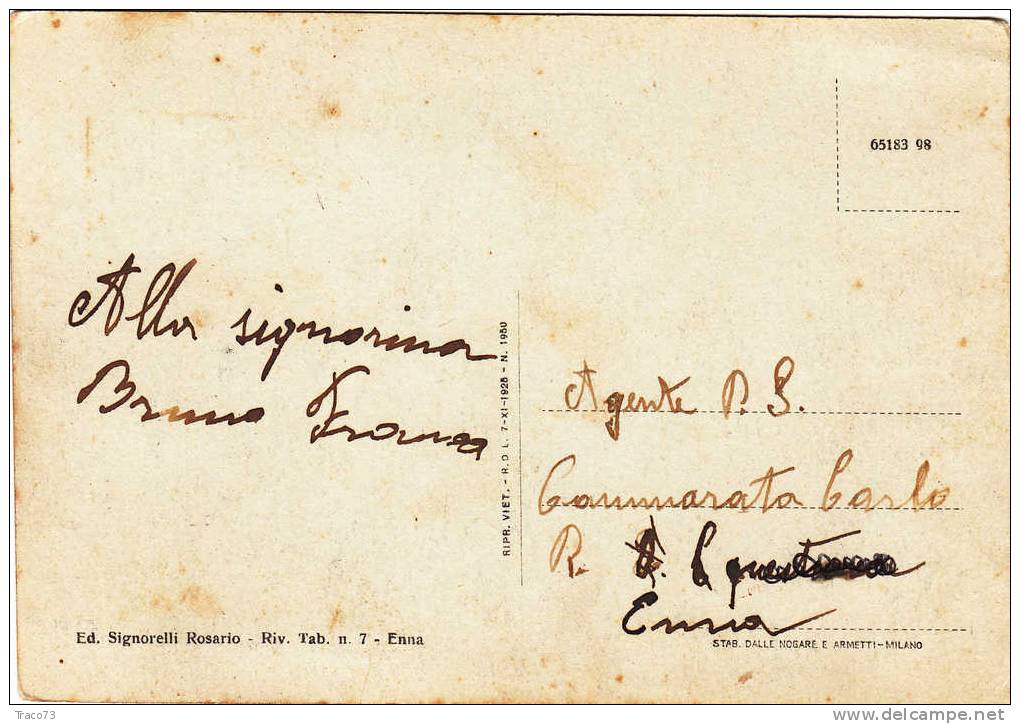 65183 98
Alla signorina
Bruno Franca
RIPR. VIET. - R. D. L. 7-XI-1925 - N. 1950
Agente P. S.
Cammarata Carlo
R.
Enna
Ed. Signorelli Rosario - Riv. Tab. n. 7 - Enna
STAB. DALLE NOGARE E ARMETTI-MILANO
Traco73
delcampe.net